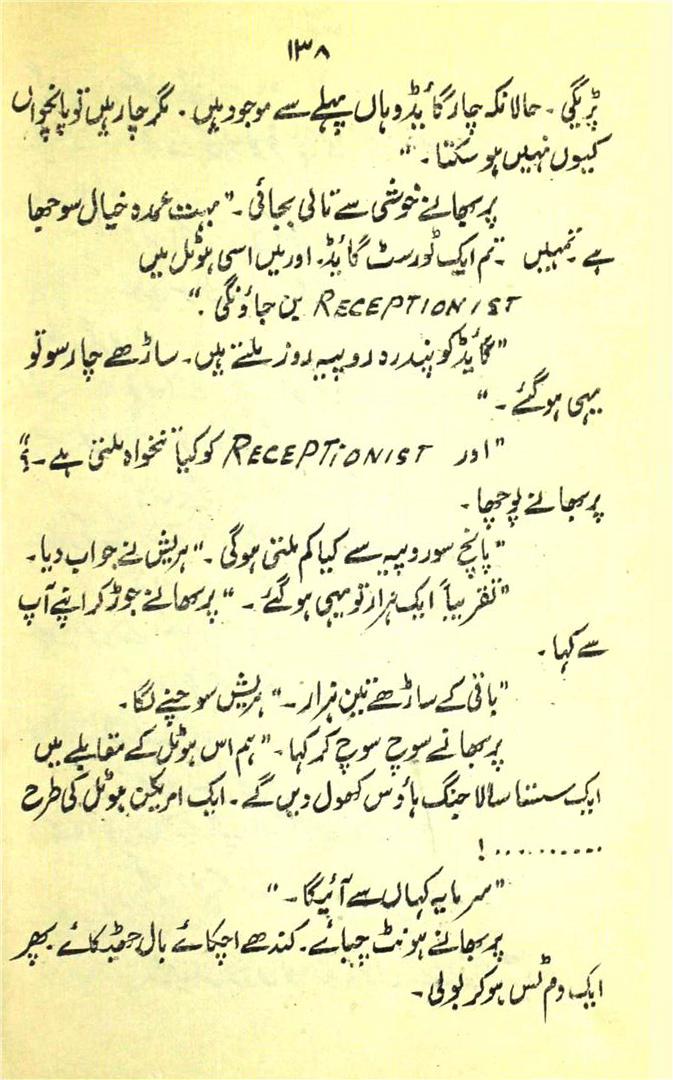 ۱۳۸
پڑیگی ۔ حالانکہ چار گائیڈ وہاں پہلے سے موجود ہیں ۔ مگر چار ہیں تو پانچواں
کیوں نہیں ہو سکتا ۔ "
پربھا نے خوشی سے تالی بجائی ۔ " بہت عمدہ خیال سوجھا
ہے تمہیں ۔ تم ایک ٹورسٹ گائیڈ ۔ اور میں اسی ہوٹل میں
RECEPTIONIST بن جاؤنگی ۔ "
" گائیڈ کو پندرہ روپیہ روز ملتے ہیں ۔ ساڑھے چار سو تو
یہی ہو گئے ۔ "
" اور RECEPTIONIST کو کیا تنخواہ ملتی ہے ۔ ؟ "
پربھا نے پوچھا ۔
" پانچ سو روپیہ سے کیا کم ملتی ہوگی ۔ " ہریش نے جواب دیا ۔
" تقریباً ایک ہزار تو یہی ہو گئے ۔ " پربھا نے جوڑ کر اپنے آپ
سے کہا ۔
" باقی کے ساڑھے تین ہزار ۔ " ہریش سوچنے لگا ۔
پربھا نے سوچ سوچ کر کہا ۔ " ہم اس ہوٹل کے مقابلے میں
ایک سستا سا لاجنگ ہاؤس کھول دیں گے ۔ ایک امریکن ہوٹل کی طرح
.......... !
" سرمایہ کہاں سے آئیگا ۔ "
پربھا نے ہونٹ چبائے ۔ کندھے اچکائے بال جھٹکائے پھر
ایک دم ٹس ہو کر بولی ۔